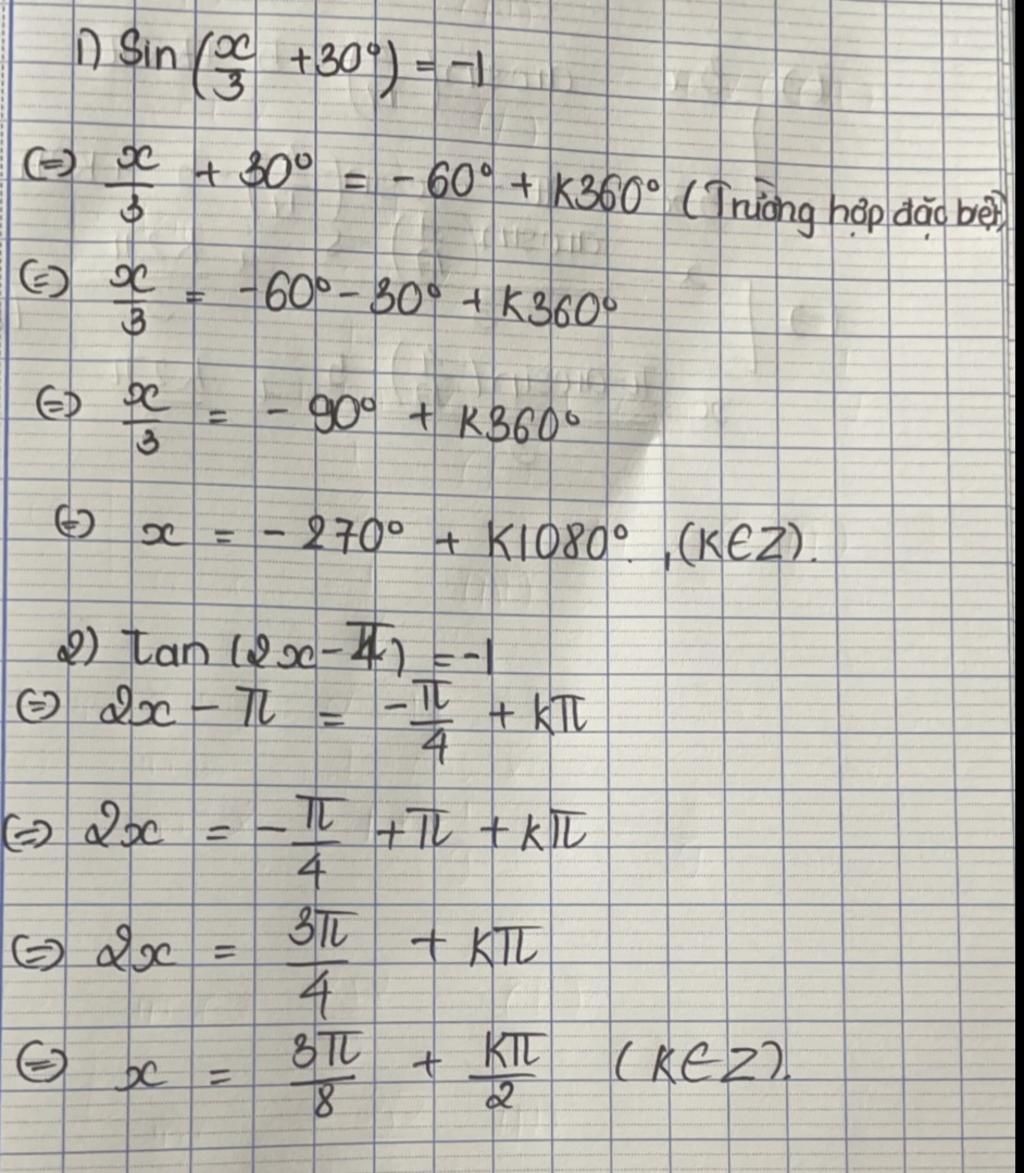 1) Sin (x/3 +30°) = -1
(=) x/3 + 30° = -60° + K360° (Trường hợp đặc biệt)
(=) x/3 = -60° - 30° + K360°
(=) x/3 = - 90° + K360°
(=) x = - 270° + K1080°. , (K∈Z).
2) Tan (2x - π) = -1
(=) 2x - π = -π/4 + kπ
(=) 2x = -π/4 + π + kπ
(=) 2x = 3π/4 + kπ
(=) x = 3π/8 + kπ/2 (K∈Z).